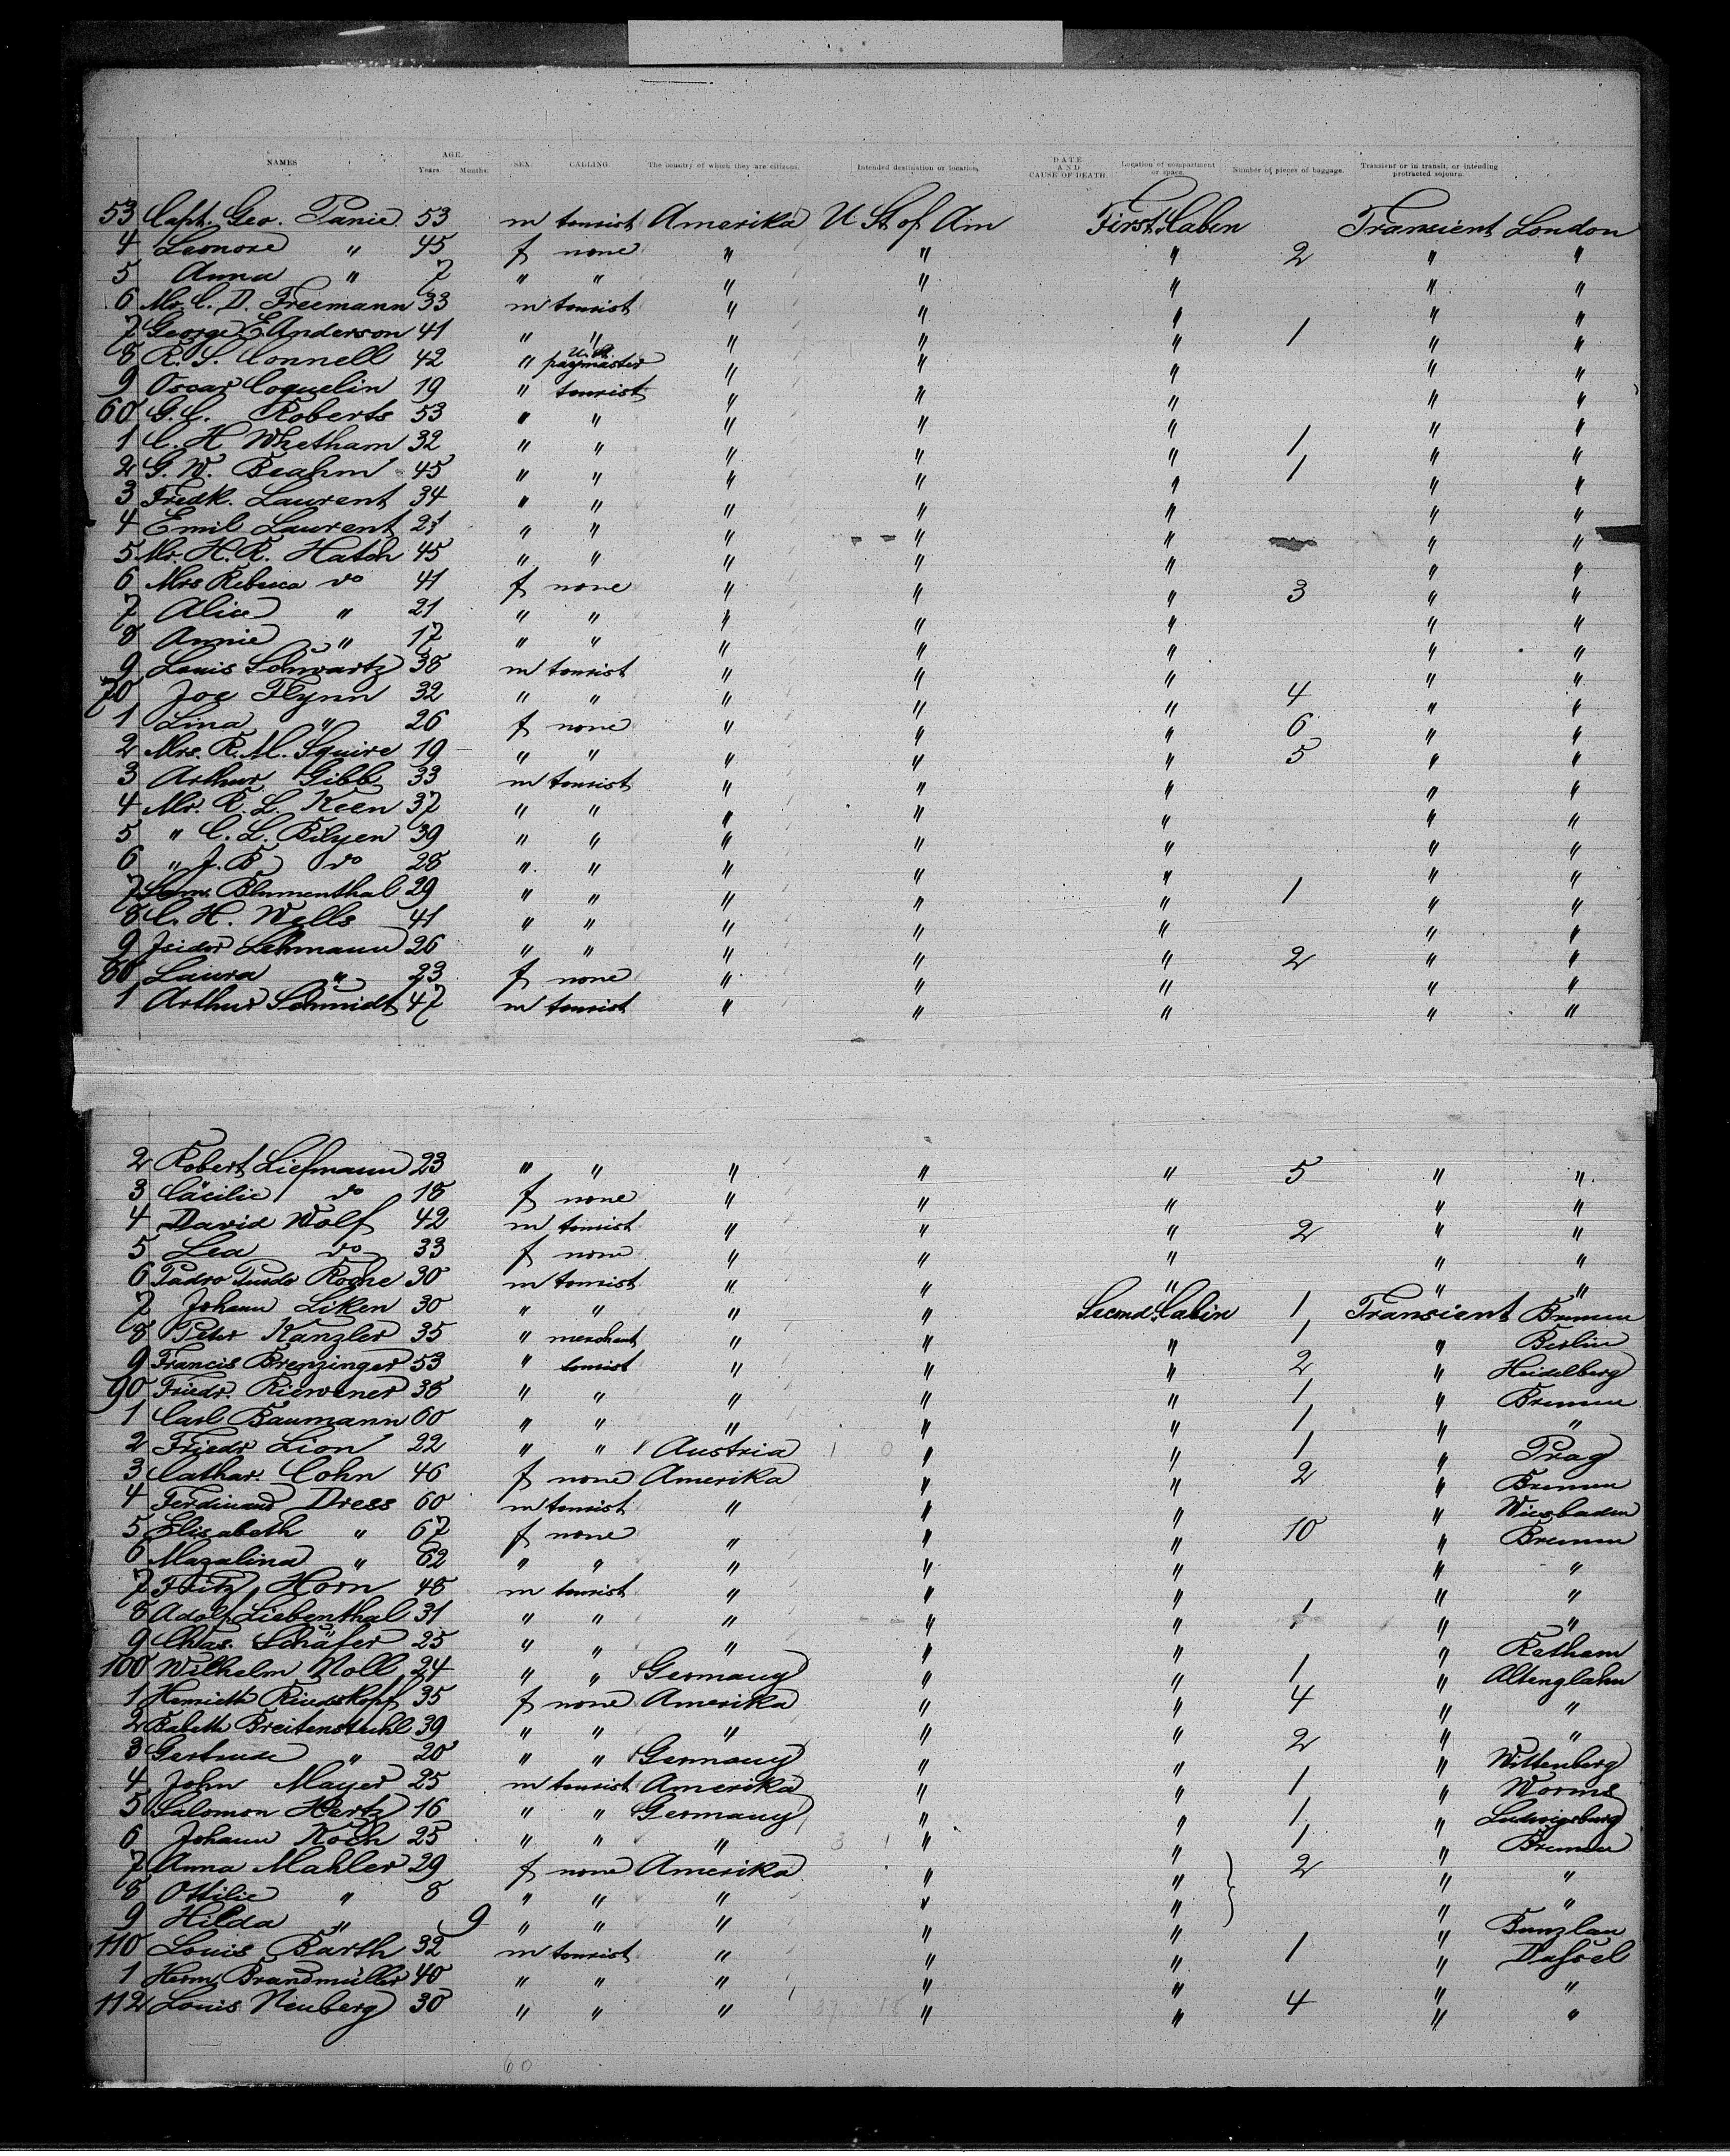 NAMES AGE. Years. Months. SEX. CALLING. The country of which they are citizens. Intended destination or location. DATE AND CAUSE OF DEATH. Location of compartment or space. Number of pieces of baggage. Transient or in transit, or intending protracted sojourn.
53 Capt. Geo. Panie 53 m tourist Amerika U. St of Am First Cabin Transient London
4 Leonore " 45 f none " " " 2 " "
5 Anna " 7 " " " " " " "
6 Mr. C. D. Freemann 33 m tourist " " " " "
7 George E. Anderson 41 " " " " " 1 " "
8 R. S. Connell 42 " paymaster " " " " "
9 Oscar Coquelin 19 " tourist " " " " "
60 G. C. Roberts 53 " " " " " " "
1 C. H. Whetham 32 " " " " " 1 " "
2 G. W. Beahm 45 " " " " " 1 " "
3 Fredk. Laurent 34 " " " " " " "
4 Emil Laurent 21 " " " " " " "
5 Mr. H. R. Hatch 45 " " " " " " "
6 Mrs Rebecca do 41 f none " " " 3 " "
7 Alice " 21 " " " " " " "
8 Annie " 17 " " " " " " "
9 Louis Schwartz 38 m tourist " " " " "
70 Joe Flynn 32 " " " " " 4 " "
1 Lina " 26 f none " " " 6 " "
2 Mrs. R. M. Squire 19 " " " " " 5 " "
3 Arthur Gibb 33 m tourist " " " " "
4 Mr. R. L. Keen 37 " " " " " " "
5 " C. L. Bilyen 39 " " " " " " "
6 " J. B do 28 " " " " " " "
7 Sam. Blumenthal 29 " " " " " 1 " "
8 C. H. Wells 41 " " " " " " "
9 Isidor Lehmann 26 " " " " " 2 " "
80 Laura " 23 f none " " " " "
1 Arthur Schmidt 47 m tourist " " " " "
2 Robert Liefmann 23 " " " " " 5 " "
3 Cäcilie do 18 f none " " " " "
4 David Wolf 42 m tourist " " " 2 " "
5 Lea do 33 f none " " " " "
6 Padro Roche 30 m tourist " " " " "
7 Johann Liken 30 " " " " Second Cabin 1 Transient Bremen
8 Peter Kanzler 35 " merchant " " " 1 " Berlin
9 Francis Brenzinger 53 " tourist " " " 2 " Heidelberg
90 Friedr. Riewener 38 " " " " " 1 " Bremen
1 Carl Baumann 60 " " " " " 1 " "
2 Friedr Lion 22 " " Austria " " 1 " Prag
3 Cathar. Cohn 46 f none Amerika " " 2 " Bremen
4 Ferdinand Dress 60 m tourist " " " " Wiesbaden
5 Elisabeth " 67 f none " " " 10 " Bremen
6 Mazalina " 62 " " " " " " "
7 Fritz Horn 48 m tourist " " " " "
8 Adolf Liebenthal 31 " " " " " 1 " "
9 Chas. Schäfer 25 " " " " " " Ratham
100 Wilhelm Noll 24 " " Germany " " 1 " Altenglahn
1 Henrieth Riedskopf 35 f none Amerika " " 4 " "
2 Babeth Breitenstuhl 39 " " " " " 2 " "
3 Gertrude " 20 " " Germany " " " Wittenberg
4 John Mayer 25 m tourist Amerika " " 1 " Worms
5 Salomon Hertz 16 " " Germany " " 1 " Ludwigsburg
6 Johann Koch 25 " " " " " 1 " Bremen
7 Anna Mahler 29 f none Amerika " " 2 " "
8 Ottilie " 8 " " " " " " "
9 Hilda " 9 " " " " " " Bunzlau
110 Louis Barth 32 m tourist " " " 1 " Dassel
1 Herm. Brandmüller 40 " " " " " " "
112 Louis Neuberg 30 " " " " " 4 " "
60